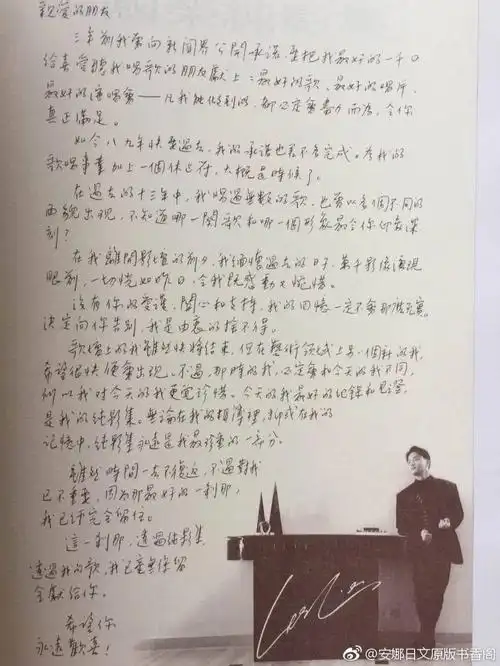 親愛的朋友
三年前我曾向新聞界公開承諾要把我最好的一千日
給喜愛聽我唱歌的朋友獻上:最好的歌、最好的唱片、
最好的演唱會——凡我能做到的,都必定會盡力而為,令你
真正滿足。
如今八九年快要過去,我的承諾也差不多完成。為我的
歌唱事業加上一個休止符,大概是時候了。
在過去的十三年中,我唱過無數的歌,也曾以多個不同的
面貌出現,不知道哪一闋歌和哪一個形象最令你印象深
刻?
在我離開歌壇的前夕,我緬懷過去的日子,第千影像湧現
眼前,一切恍如昨日,令我既感動又惋惜。
沒有你的愛護、關心和支持,我的回憶一定不會那麼充實。
決定向你告別,我是由衷的捨不得。
歌壇上的我雖然快將結束,但在藝術領域上另一個新的我,
希望很快便會出現。不過,那時的我,必定會和今天的我不同,
所以我對今天的我更電珍惜。今天的我最好的紀錄和見證,
是我的結影集。無論在我的相簿裡,抑或在我的
記憶中,結影集永遠是我最珍重的一部分。
雖然時間一去不復返,不過對我
已不重要,因為那最好的一剎那,
我已經完全留住。
這一剎那,透過結影集
透過我的歌,我已毫無保留
全獻給你。
希望你
永遠歡喜!
Leslie
@安娜日文原版书香阁